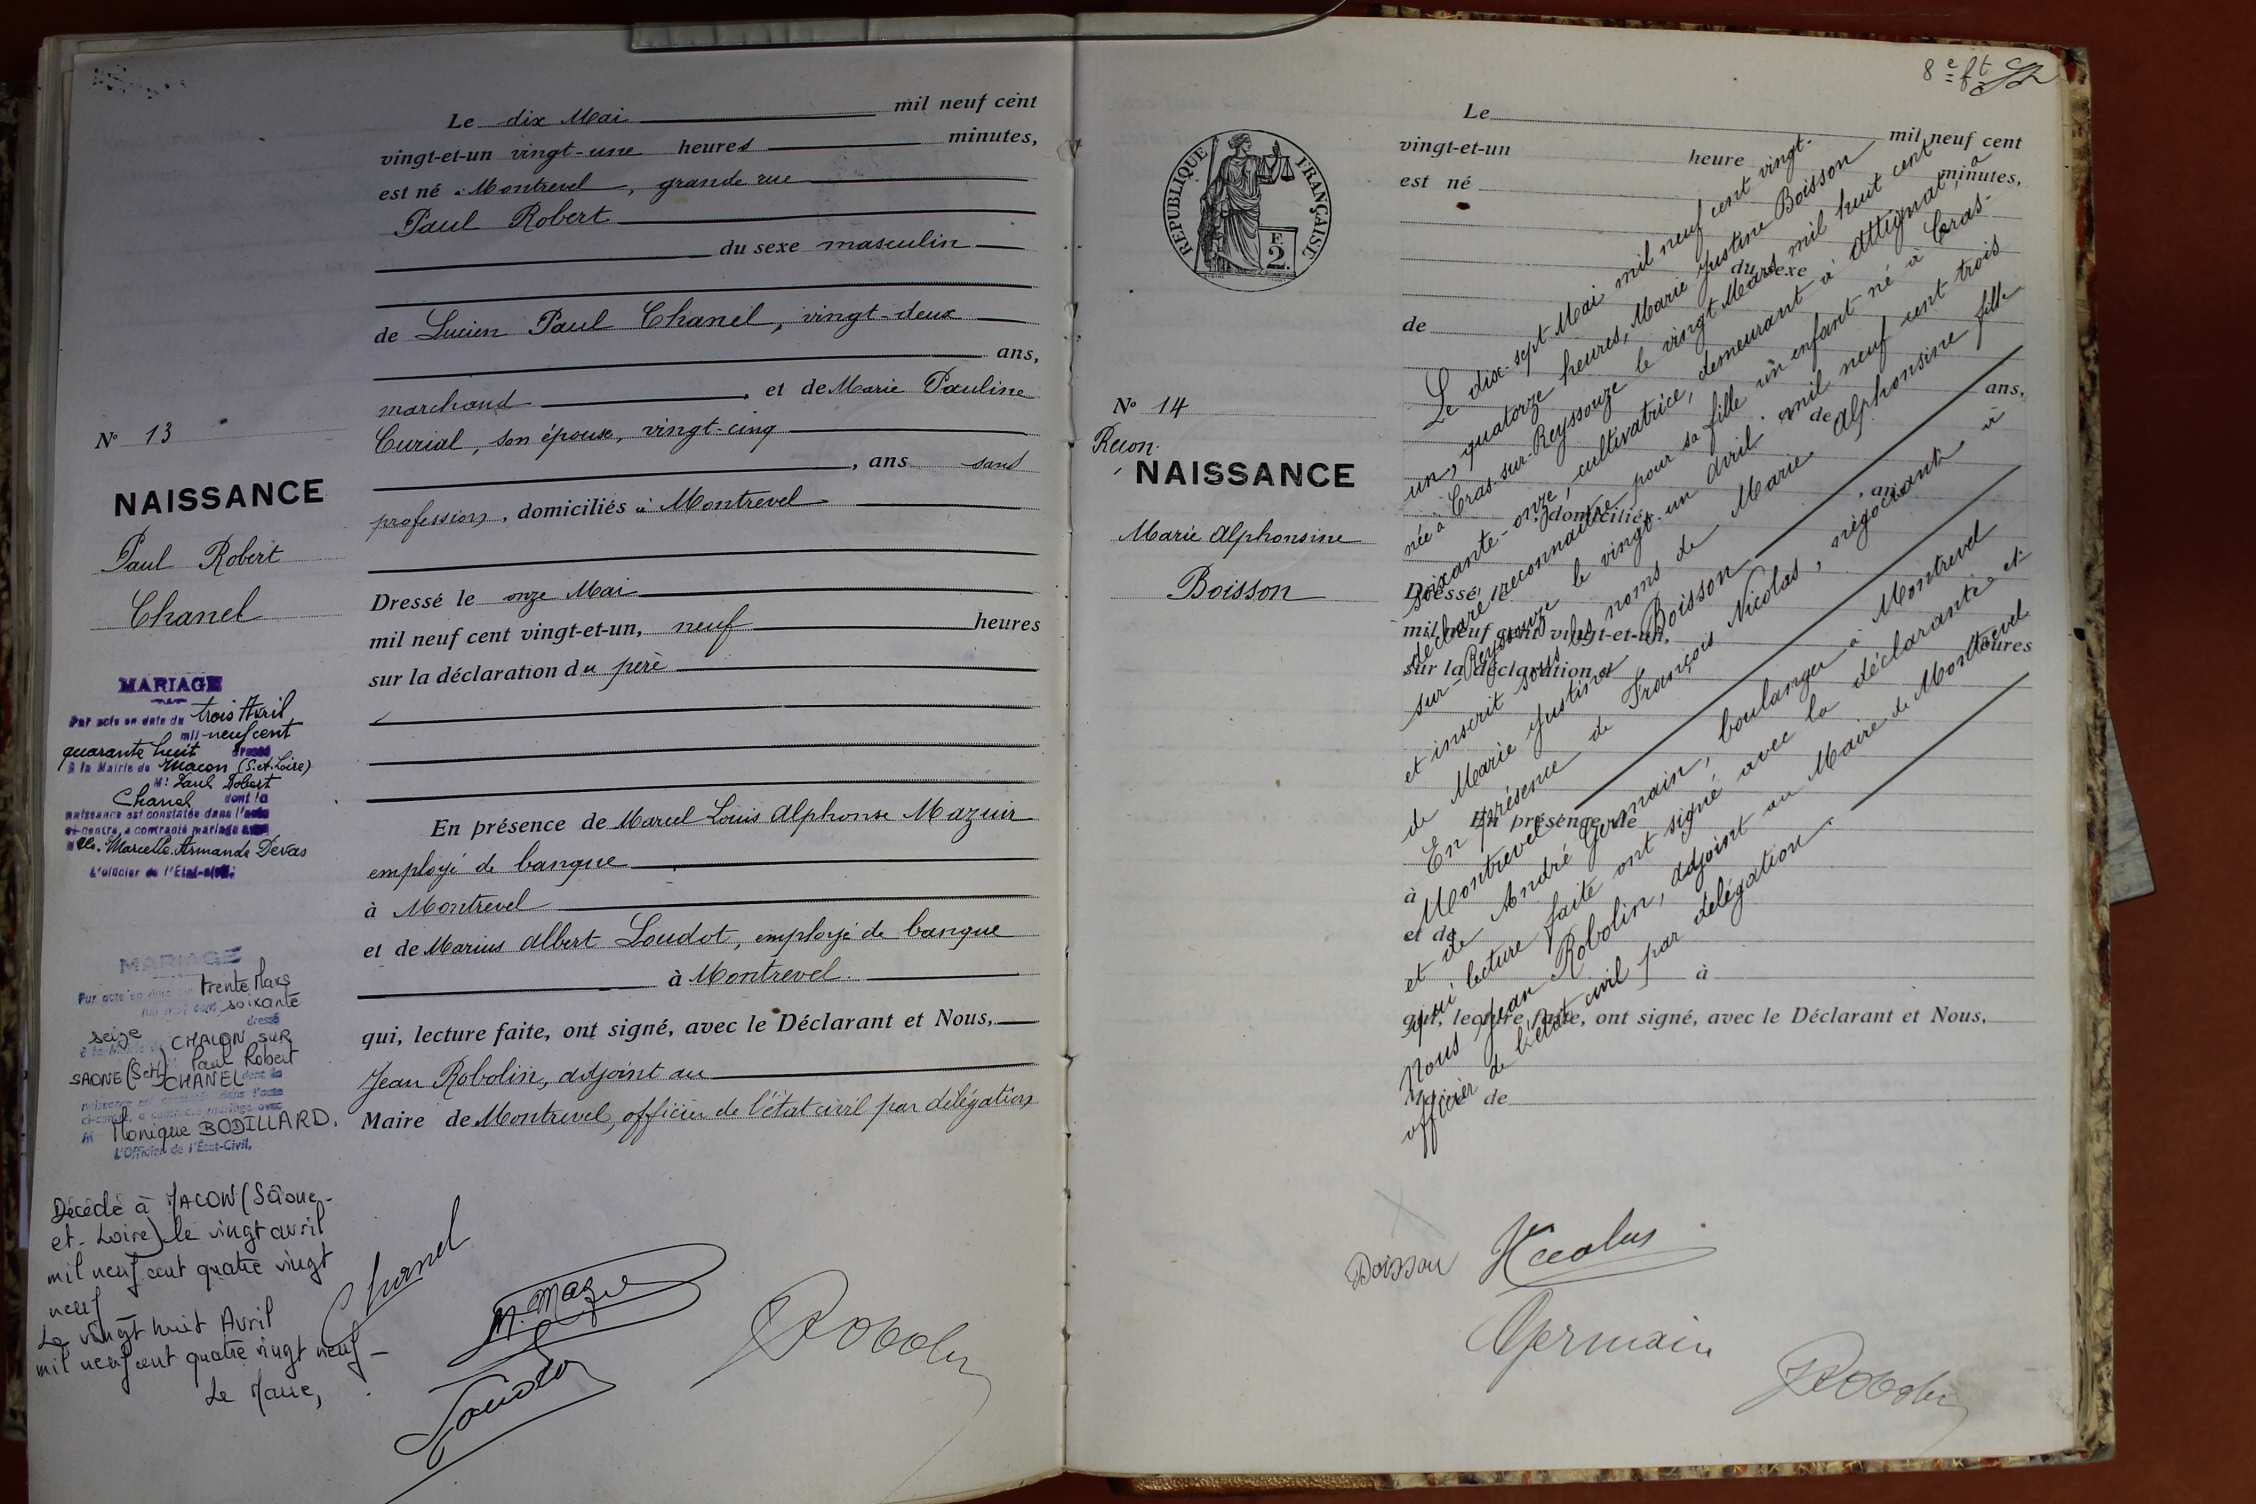 Le dix Mai mil neuf cent
vingt-et-un vingt-une heures minutes,
est né à Montrevel, grande rue
Paul Robert
du sexe masculin
de Lucien Paul Chanel, vingt-deux
ans,
marchand, et de Marie Pauline
Curial, son épouse, vingt-cinq
, ans sans
profession, domiciliés à Montrevel
Dressé le onze Mai
mil neuf cent vingt-et-un, neuf heures
sur la déclaration du père
En présence de Marcel Louis Alphonse Mazuir
employé de banque
à Montrevel
et de Marius Albert Loudot, employé de banque
à Montrevel.
qui, lecture faite, ont signé, avec le Déclarant et Nous,
Jean Robolin, adjoint au
Maire de Montrevel, officier de l'état civil par délégation
N° 13
NAISSANCE
Paul Robert
Chanel
MARIAGE
Par acte en date du trois Avril
mil neuf cent
quarante huit dressé
à la Mairie de Macon (S.et.Loire)
Mr Paul Robert
Chanel dont la
naissance est constatée dans l'acte
ci-contre, a contracté mariage avec
Mlle. Marcelle Armande Devas
L'officier de l'Etat-civil:
MARIAGE
Par acte en date du trente Mars
mil neuf cent soixante
seize dressé
à la Mairie de CHALON SUR
SAONE (S et L) Paul Robert
CHANEL dont la
naissance est constatée dans l'acte
ci-contre, a contracté mariage avec
M Monique BODILLARD.
L'Officier de l'État-Civil,
Décédé à MACON (Saône-
et-Loire) le vingt avril
mil neuf cent quatre vingt
neuf
Le vingt huit Avril
mil neuf cent quatre vingt neuf_
Le Maire,
Chanel
M. Mazuir
Loudot
Robolin
8e ft
RÉPUBLIQUE FRANÇAISE
F.
2.
N° 14
Recon.
NAISSANCE
Marie Alphonsine
Boisson
Le mil neuf cent
vingt-et-un heure minutes,
est né
du sexe
de
ans,
de
, ans
, domiciliés
Dressé le
mil neuf cent vingt-et-un, heures
sur la déclaration
En présence de
à
et de
à
qui, lecture faite, ont signé, avec le Déclarant et Nous,
Maire de
Le dix-sept Mai mil neuf cent vingt-
un, quatorze heures, Marie Justine Boisson
née à Cras-sur-Reyssouze le vingt Mars mil huit cent
soixante-onze, cultivatrice, demeurant à Attignat, a
déclaré reconnaître pour sa fille un enfant né à Cras-
sur-Reyssouze le vingt-un Avril mil neuf cent trois
et inscrit sous les noms de Marie Alphonsine fille
de Marie Justine Boisson
En présence de François Nicolas, négociant à
Montrevel
et de André Germain, boulanger à Montrevel
qui lecture faite ont signé avec la déclarante et
Nous Jean Robolin, adjoint au Maire de Montrevel
officier de l'état civil par délégation.
Boisson
Nicolas
Germain
Robolin